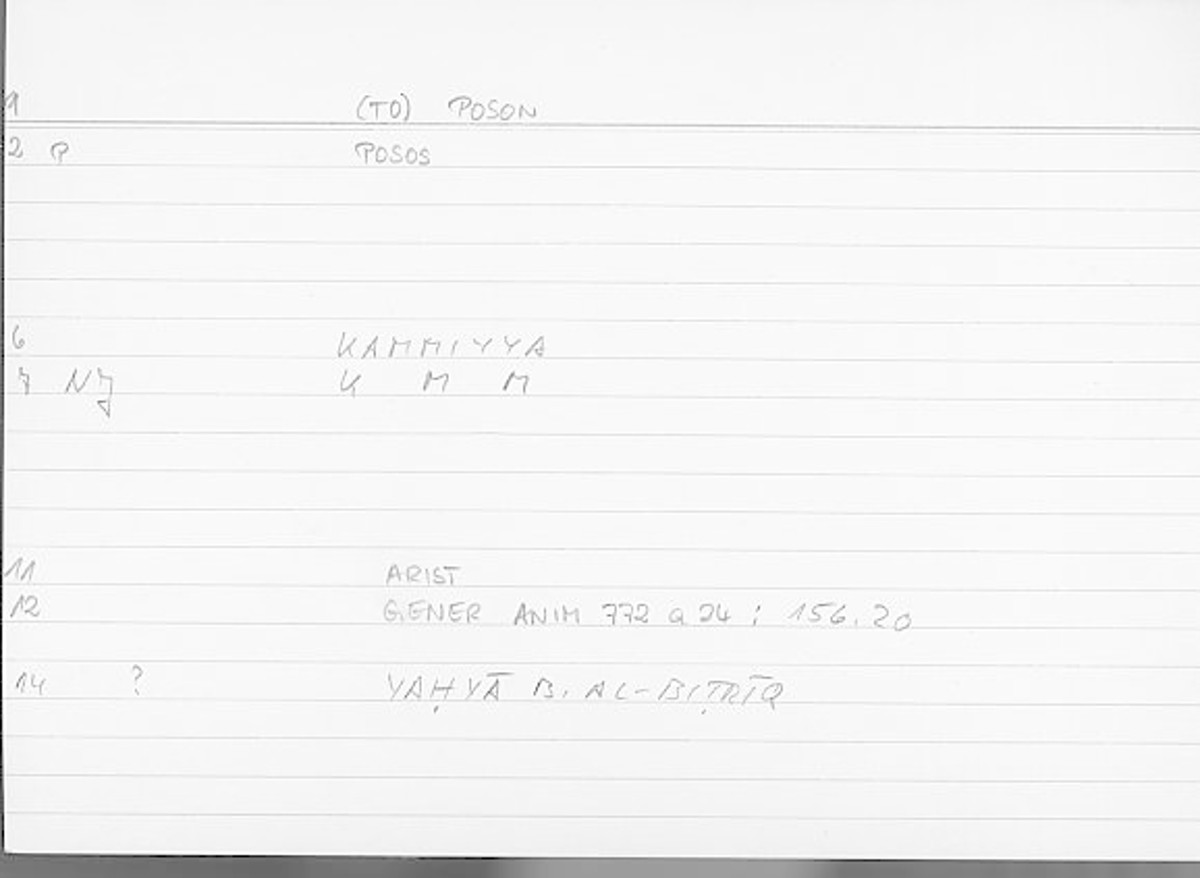 1 (TO) POSON
2 P POSOS
6 KAMMIYYA
7 NJ K M M
11 ARIST
12 GENER ANIM 772 a 24 ; 156.20
14 ? YAḤYĀ B. AL-BIṬRĪQ